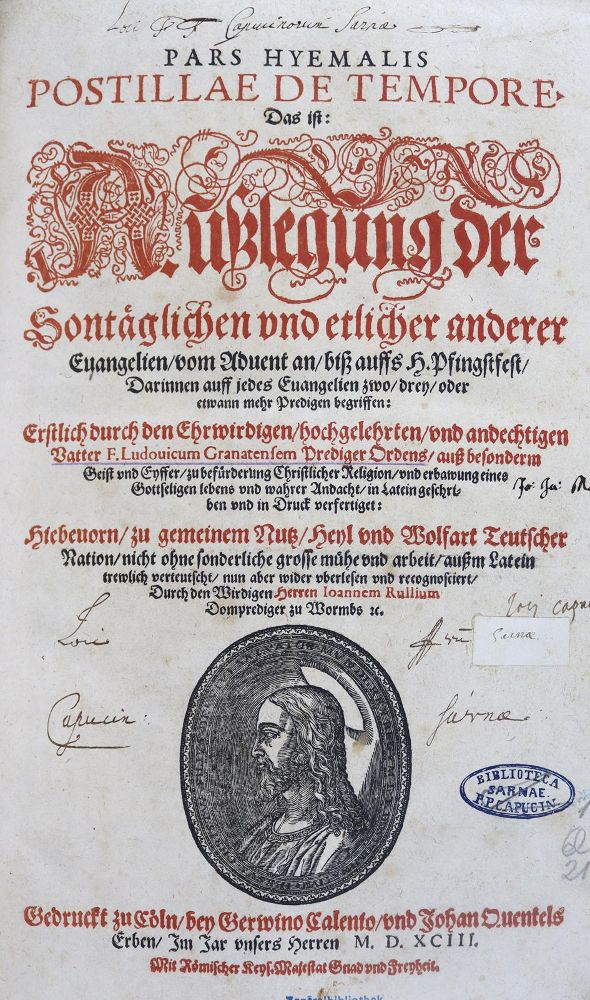 Loci Capucinorum Sarnæ
PARS HYEMALIS
POSTILLAE DE TEMPORE.
Das ist:
Außlegung der
Sontäglichen vnd etlicher anderer
Euangelien/vom Aduent an/biß auffs H.Pfingstfest/
Darinnen auff jedes Euangelien zwo/drey/oder
etwann mehr Predigen begriffen:
Erstlich durch den Ehrwirdigen/hochgelehrten/vnd andechtigen
Vatter F. Ludouicum Granatensem Prediger Ordens/auß besonderm
Geist vnd Eyffer/zu befürderung Christlicher Religion/vnd erbawung eines
Gottseligen lebens vnd wahrer Andacht/in Latein geschri-
ben vnd in Druck verfertiget:
Hiebeuorn/zu gemeinem Nutz/Heyl vnd Wolfart Teutscher
Nation/nicht ohne sonderliche grosse mühe vnd arbeit/außm Latein
trewlich verteutscht/nun aber wider vberlesen vnd recognosciert/
Durch den Wirdigen Herren Ioannem Rullium
Domprediger zu Wormbs ꝛc.
Loci
Sarnæ
Capucin:
Sarnæ.
BIBLIOTECA
SARNAE.
P.P.CAPUCIN.
62
21
Gedruckt zu Cöln/bey Gerwino Calenio/vnd Johan Quentels
Erben/ Im Jar vnsers Herren M. D. XCIII.
Mit Römischer Keys. Maiestat Gnad vnd Freyheit.
Zentralbibliothek